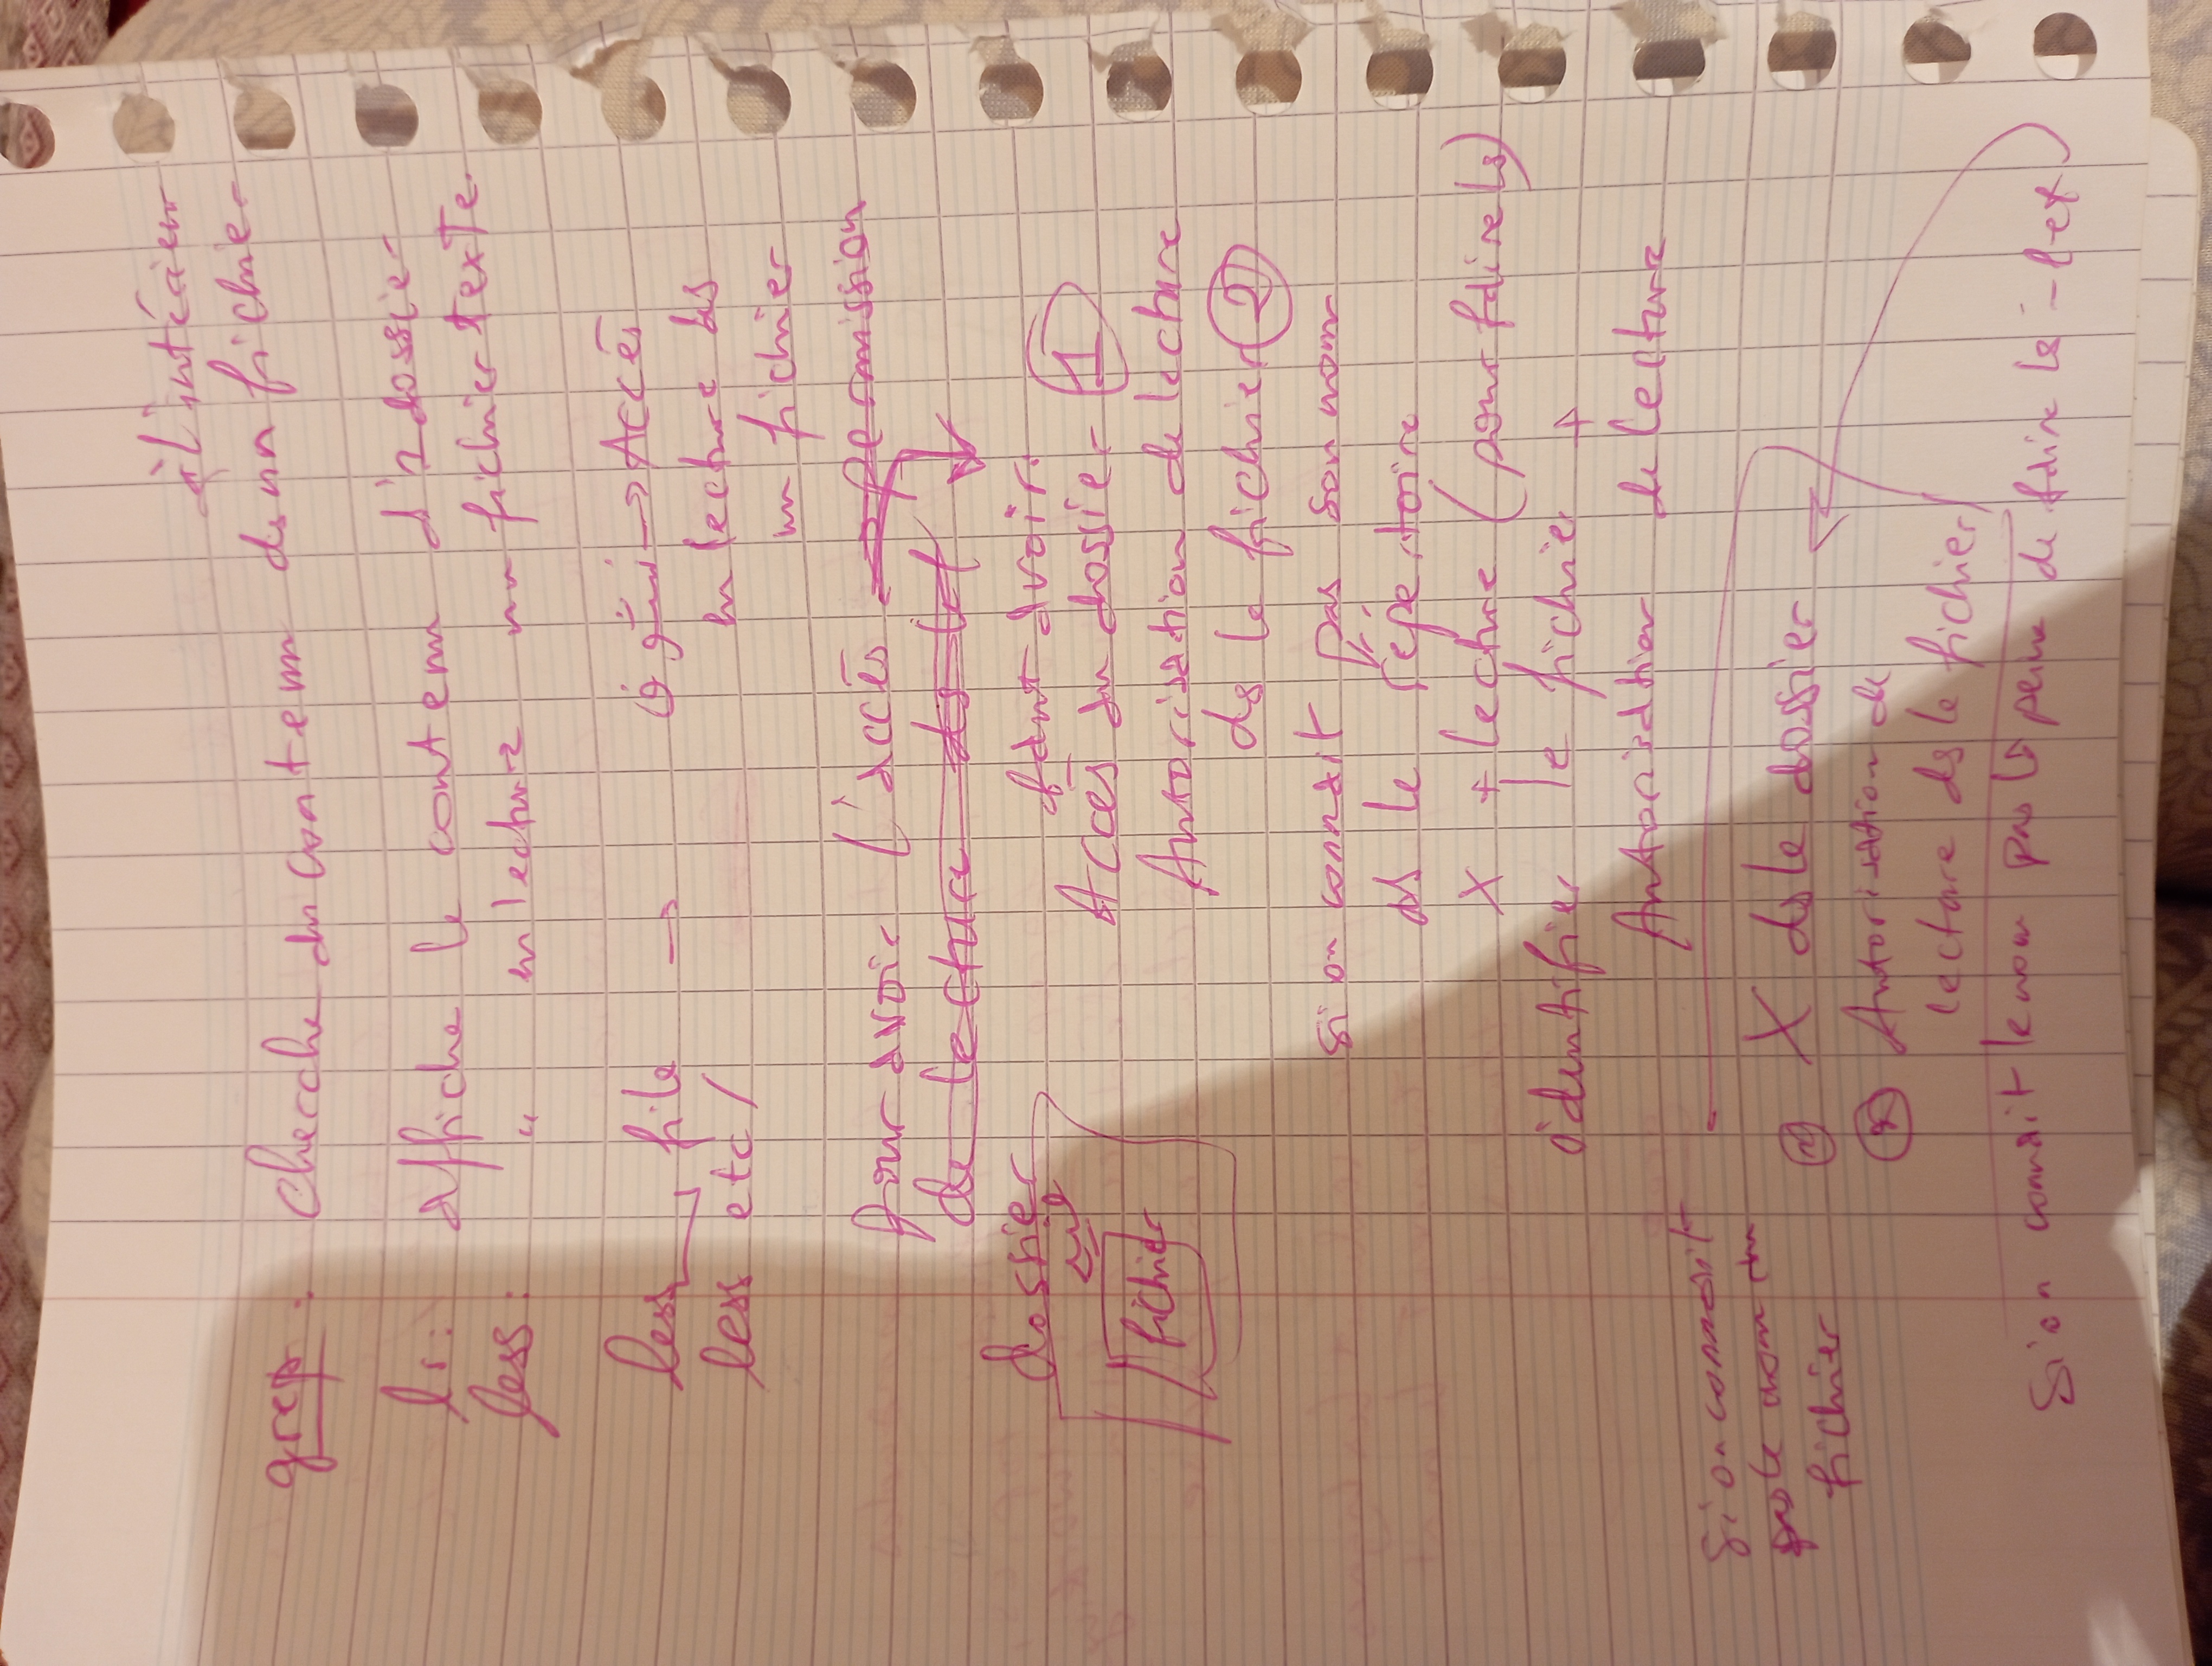 à l'intérieur
grep : cherche du contenu ds un fichier
ls : Affiche le contenu d'1 dossier
less : " en lecture un fichier texte.
less file → Accès
less etc/ en lecture ds
un fichier
pour avoir l'accès → permission
de lecture ds let
dossier
faut avoir
Accès du dossier 1
fichier
Autorisation de lecture
ds le fichier 2
si on connait pas son nom
ds le répertoire
X + lecture (pour faire ls)
identifier le fichier +
Autorisation de lecture
Si on connait
pas le nom du
fichier
X ds le dossier
Autorisation de
lecture ds le fichier
Si on connait le nom pas la peine de faire ls -l et